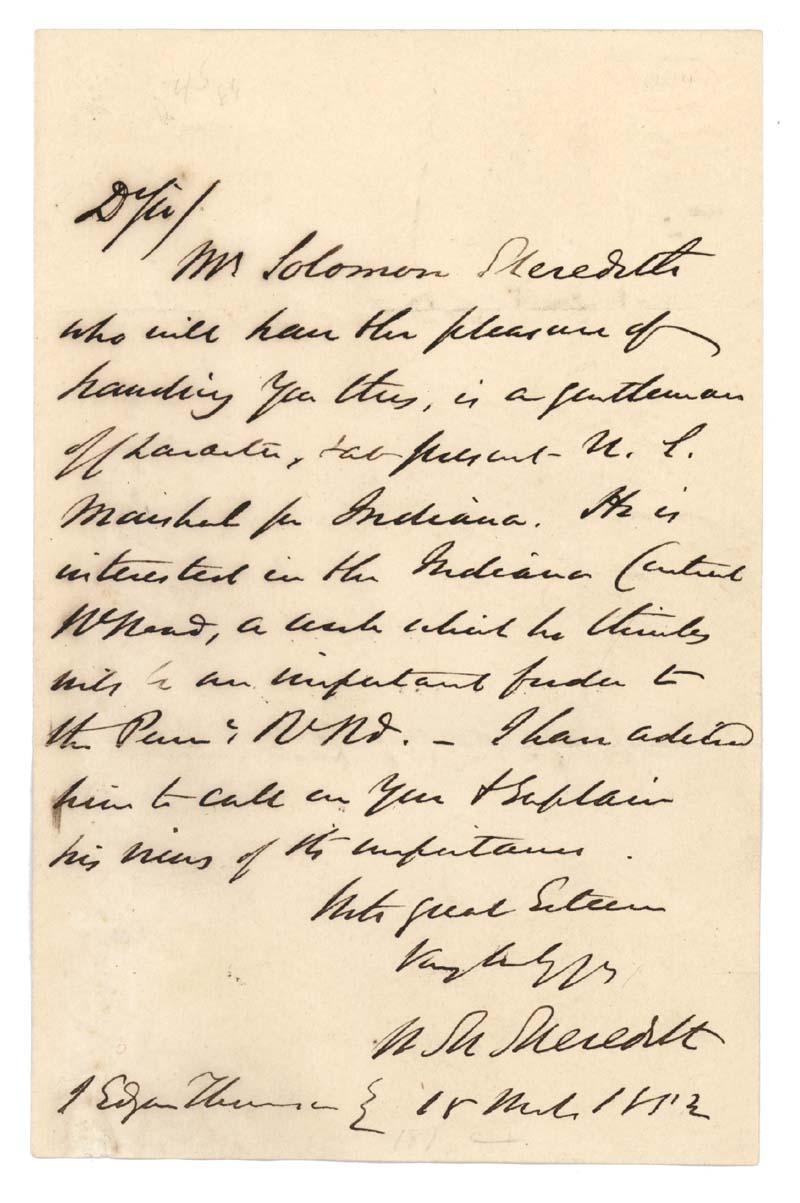 D Sir/
Mr Solomon Meredith
who will have the pleasure of
handing you this, is a gentleman
of character, & at present U. S.
Marshal for Indiana. He is
interested in the Indiana Central
RRoad, a work which he thinks
will be an important feeder to
the Penna RRd. – I have advised
him to call on you & explain
his views of its importance.
With great Esteem
Very truly yrs
W M Meredith
J Edgar Thomson E 18 Mch 1852